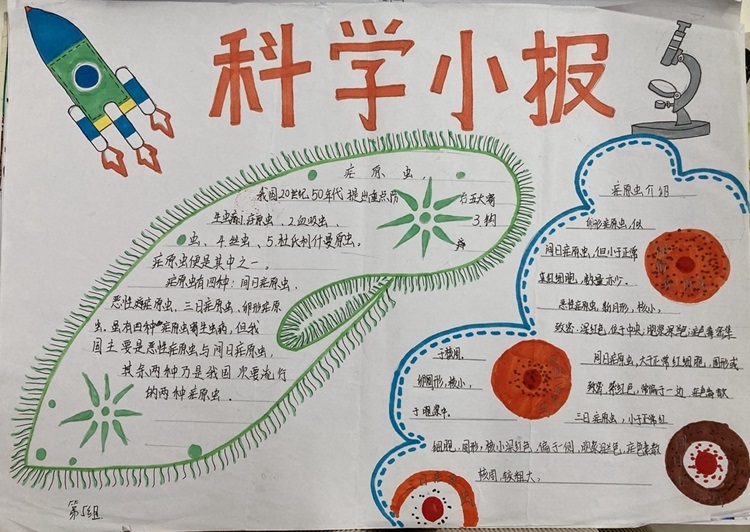 科学小报
疟原虫
我国20世纪50年代提出重点防 治五大寄
生虫病:1.疟原虫、2.血吸虫、 3.钩
虫、4.丝虫、5.杜氏利什曼原虫。 病
疟原虫便是其中之一。
疟原虫有四种:间日疟原虫、
恶性疟原虫、三日疟原虫、卵形疟原
虫。虽有四种疟原虫寄生虫病,但我
国主要是恶性疟原虫与间日疟原虫,
其余两种乃是我国次要流行
的两种疟原虫。
第5组
疟原虫介绍
卵形疟原虫,似
间日疟原虫,但小于正常
红细胞,数量亦少。
恶性疟原虫,新月形,核小,
致密,深红色,位于中央,
间日疟原虫,大于正常红细胞,圆形或
于核周。
卵圆形,核小,
致密,深红色,常偏于一边
于胞浆中。
三日疟原虫,小于正常红
细胞,圆形,核小深红色,偏于一侧,
核周,较粗大。